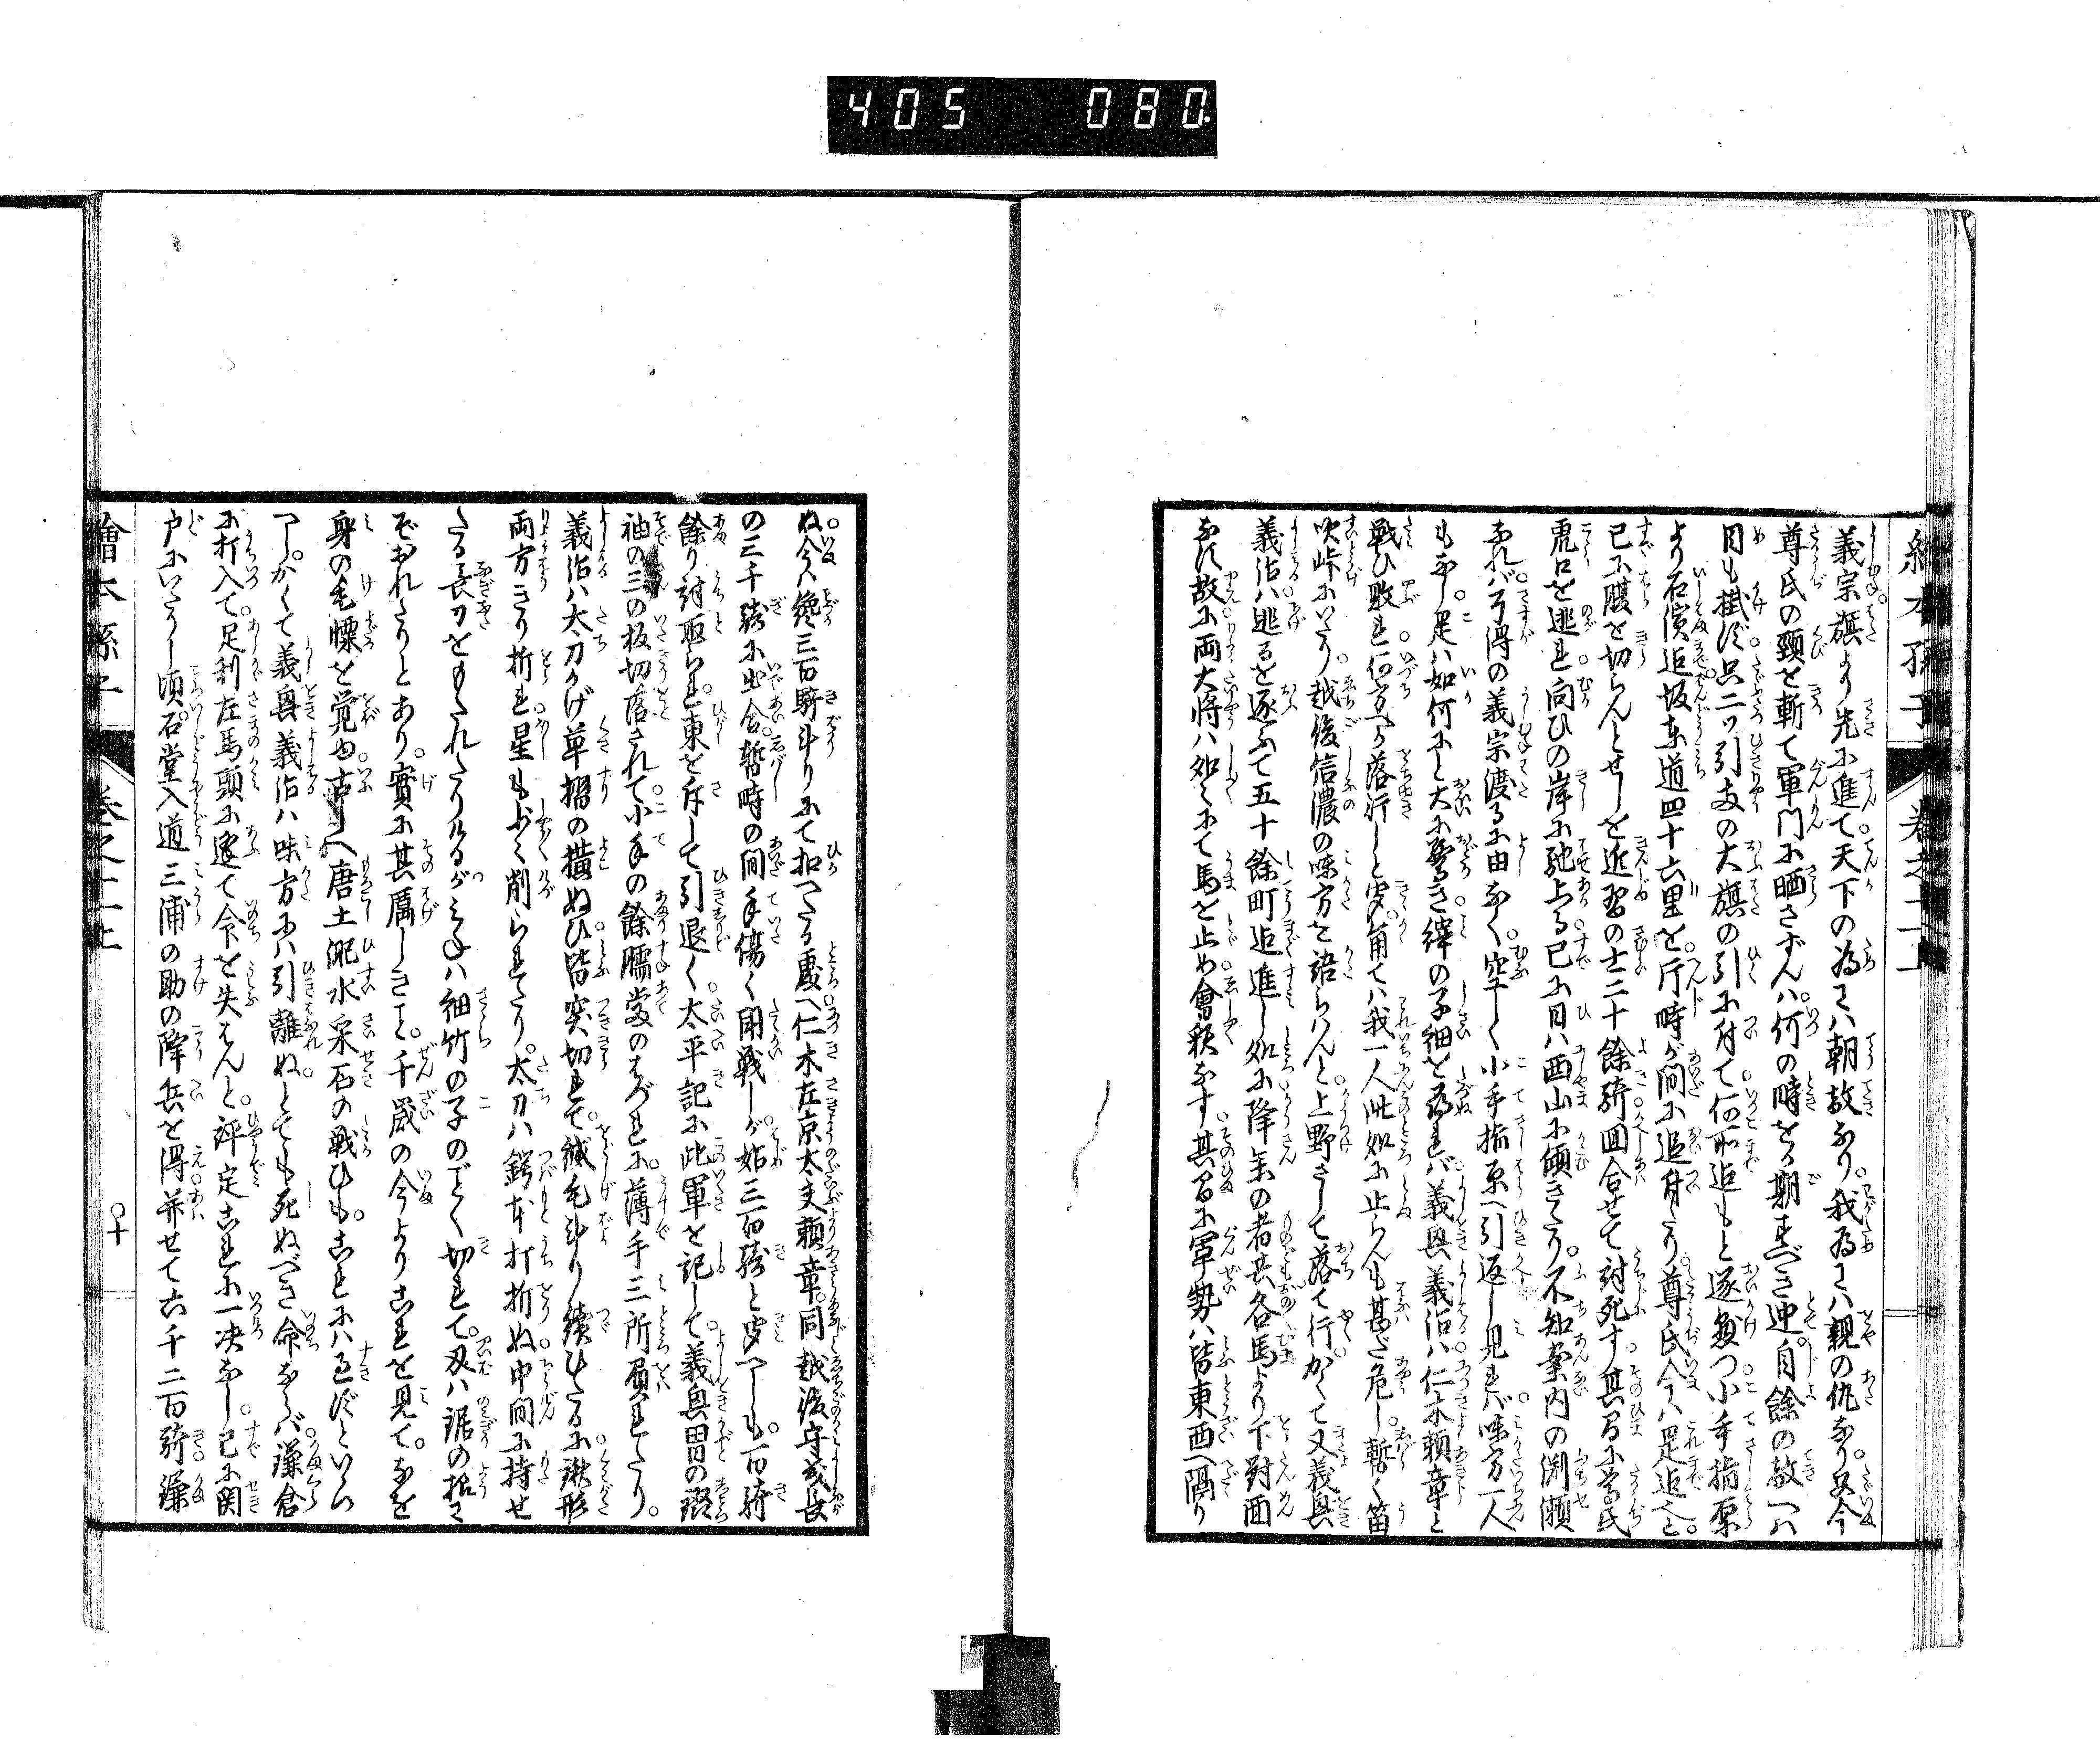 405 080
繪本孫子 卷之二上
義宗旗より先に進て。天下の為には朝敵なり。我為には親の仇なり。只今
尊氏の頸を斬て軍門に晒さずんば。何の時をか期すべき迚。自餘の敵へは
目も掛ず。只二ツ引両の大旗の引に付て。何所迄もと逐懸つ。小手指原
より石濱迄坂東道四十六里を。片時が間に追付たり。尊氏今は是迄と。
已に腹を切らんとせしを近習の士二十餘騎囬合せて討死す。其間に尊氏
虎口を逃れ。向ひの岸に馳上る。已に日は西山に傾きたり。不知案内の渕瀬
なれば。さすがの義宗渡るに由なく。空しく小手指原へ引返し見れば。味方一人
もなし。是は如何にと大に驚き。縡の子細を尋れば。義興義治は仁木頼章と
戦ひ敗れ。何方へか落行しと。我一人此処に止らんも甚だ危し。暫く笛
吹峠にいたり。越後信濃の味方を語らはんと。上野さして落て行。かくて又義興
義治は逃るを逐ふて五十餘町迄進し処に降参の者共各馬より下對面
なす。故に両大将は処々にて馬を止め會釈なす。其間に軍勢は皆東西へ隔り
ぬ。今は纔三百騎斗りにて扣へたる處へ。仁木左京大夫頼章。同越後守義長
の三千騎に出合。暫時の間手傷く闘戦しが。始三百騎と しも。百騎
餘り討取られ。東を斥して引退く。太平記に此軍を記して。義興冑の
袖の三の板切落されて。小手の餘臑當のはづれに。薄手三所負れたり。
義治は太刀かげ草摺の横ぬひ。皆突切れて。縅毛斗り續ひたるに。鍬形
両方きり折れ。星も少々削られたり。太刀は鍔本打折ぬ。中間に持せ
たる長刀をもたれたりけるが。みねは細竹の子のごとく切れて。刃は鋸の
ぞおれたりとあり。實に其厲しきこと。千歳の今よりこれを見て。なを
身の毛慄を覚ゆ。古しへ唐土淝水采石の戦ひも。これには過ずといふ
べし。かくて義興義治は味方には引離ぬ。とても死ぬべき命ならば。鎌倉
に打入て。足利左馬頭に逢て命を失はんと。評定これに一決なし。已に関
戸にいたりし頃。石堂入道三浦の助の降兵を得。并せて六千二百騎。鎌
繪本孫子 卷之二上 〇十